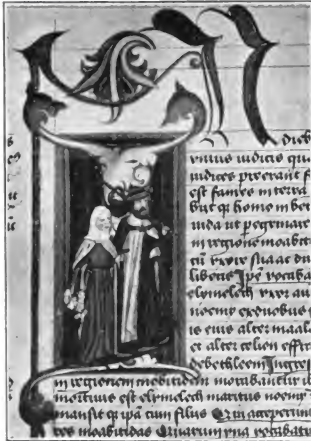 I N dieb
vnius iudicis qu
iudices preerant f
est fames in terra
but q homo in bet
iuda ut pegrinare
in regione moabiti
cū vxore sua ac du
libeis Ipē vocaba
elymelech vxor au
noemy exduobus f
is eius alter maalo
et alter celion effra
debethleem Ingres
in regionem mobitidem morabantur ib
mortuus est elymelech maritus noemy
mansit q ipā cum filijs Qui acceperunt
res moabitidas Quarum vna vocabatur